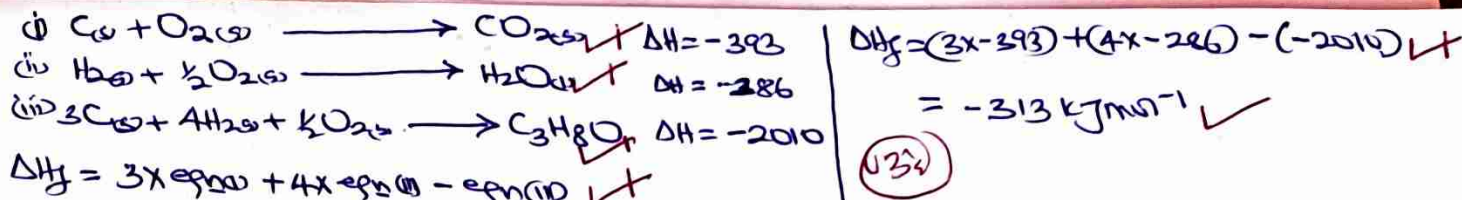 (i) C(s) + O2(g) → CO2(g) ΔH = -393
(ii) H2(g) + ½O2(g) → H2O(l) ΔH = -286
(iii) 3C(s) + 4H2(g) + ½O2(g) → C3H8O, ΔH = -2010
ΔHf = 3x eqn(i) + 4x eqn(ii) - eqn(iii)
ΔHf = (3x-393) + (4x-286) - (-2010)
= -313 kJmol⁻¹